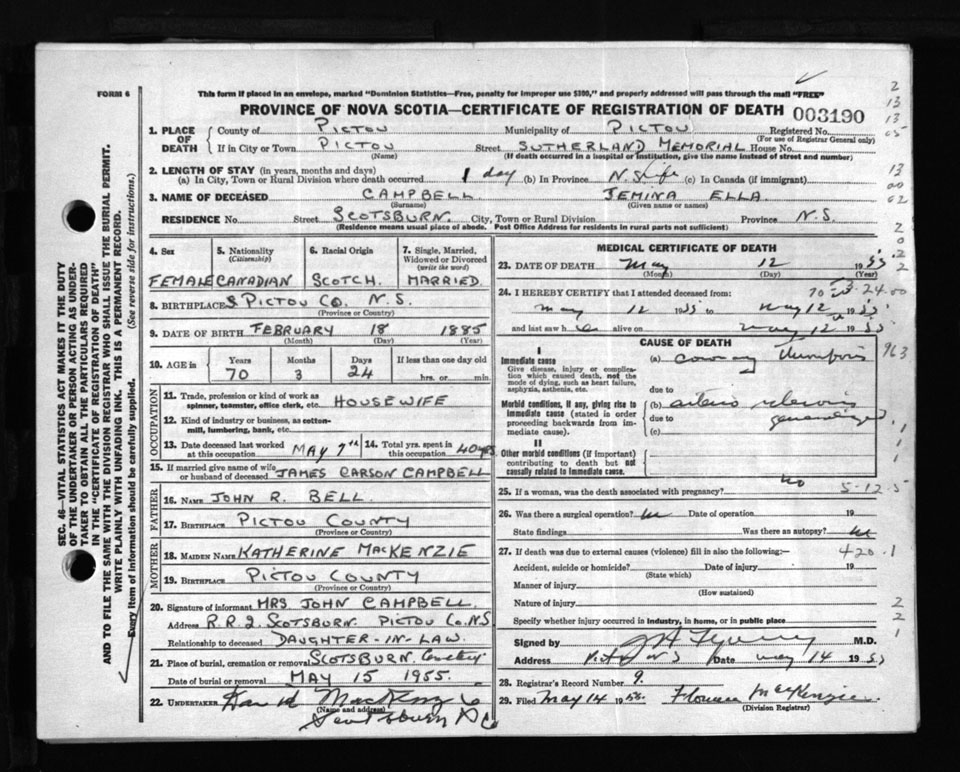 FORM 6
This form if placed in an envelope, marked "Dominion Statistics—Free, penalty for improper use $300," and properly addressed will pass through the mail "FREE"
PROVINCE OF NOVA SCOTIA—CERTIFICATE OF REGISTRATION OF DEATH 003190
1. PLACE OF DEATH County of PICTOU Municipality of PICTOU Registered No.
(For use of Registrar General only)
If in City or Town PICTOU Street SUTHERLAND MEMORIAL House No.
(Name) (If death occurred in a hospital or institution, give the name instead of street and number)
2. LENGTH OF STAY (in years, months and days)
(a) In City, Town or Rural Division where death occurred 1 day (b) In Province N.S. life (c) In Canada (if immigrant)
3. NAME OF DECEASED CAMPBELL JEMINA ELLA
(Surname) (Given name or names)
RESIDENCE No. Street SCOTSBURN. City, Town or Rural Division Province N.S.
(Residence means usual place of abode. Post Office Address for residents in rural parts not sufficient)
4. Sex 5. Nationality (Citizenship) 6. Racial Origin 7. Single, Married, Widowed or Divorced (write the word)
FEMALE CANADIAN SCOTCH. MARRIED.
8. BIRTHPLACE PICTOU CO. N.S.
(Province or Country)
9. DATE OF BIRTH FEBRUARY 18 1885
(Month) (Day) (Year)
10. AGE in Years Months Days If less than one day old
70 3 24 hrs. or min.
OCCUPATION
11. Trade, profession or kind of work as spinner, teamster, office clerk, etc. HOUSEWIFE
12. Kind of industry or business, as cotton-mill, lumbering, bank, etc.
13. Date deceased last worked at this occupation MAY 7th 14. Total yrs. spent in this occupation 40 yrs.
15. If married give name of wife or husband of deceased JAMES CARSON CAMPBELL
FATHER
16. NAME JOHN R. BELL.
17. BIRTHPLACE PICTOU COUNTY
(Province or Country)
MOTHER
18. MAIDEN NAME KATHERINE MACKENZIE
19. BIRTHPLACE PICTOU COUNTY
(Province or Country)
20. Signature of informant MRS. JOHN CAMPBELL.
Address R.R.2. SCOTSBURN. PICTOU CO. N.S
Relationship to deceased DAUGHTER-IN-LAW.
21. Place of burial, cremation or removal SCOTSBURN. Cemetery
Date of burial or removal MAY 15 1955.
22. UNDERTAKER
(Name and address)
MEDICAL CERTIFICATE OF DEATH
23. DATE OF DEATH May 12 1955
(Month) (Day) (Year)
24. I HEREBY CERTIFY that I attended deceased from: 70 3-24.00
May 12 1955 May 12 1955
and last saw h alive on May 12 1955
CAUSE OF DEATH 963
I
Immediate cause (a)
Give disease, injury or complication which caused death, not the mode of dying, such as heart failure, asphyxia, asthenia, etc.
due to
Morbid conditions, if any, giving rise to immediate cause (stated in order proceeding backwards from immediate cause). (b)
due to
(c)
II
Other morbid conditions (if important) contributing to death but not causally related to immediate cause.
25. If a woman, was the death associated with pregnancy? no 5-12.5
26. Was there a surgical operation? Date of operation 19
State findings Was there an autopsy?
27. If death was due to external causes (violence) fill in also the following:— 420.1
Accident, suicide or homicide? Date of injury 19
(State which)
Manner of injury
(How sustained)
Nature of injury
Specify whether injury occurred in industry, in home, or in public place
Signed by M.D.
Address Pictou N S Date May 14 1955
28. Registrar's Record Number 9.
29. Filed May 14 1955. Florence MacKenzie
(Division Registrar)
SEC. 46—VITAL STATISTICS ACT MAKES IT THE DUTY
OF THE UNDERTAKER OR PERSON ACTING AS UNDER-
TAKER TO OBTAIN ALL THE PARTICULARS REQUIRED
IN THE "CERTIFICATE OF REGISTRATION OF DEATH"
AND TO FILE THE SAME WITH THE DIVISION REGISTRAR WHO SHALL ISSUE THE BURIAL PERMIT.
WRITE PLAINLY WITH UNFADING INK. THIS IS A PERMANENT RECORD.
Every item of information should be carefully supplied. (See reverse side for instructions.)